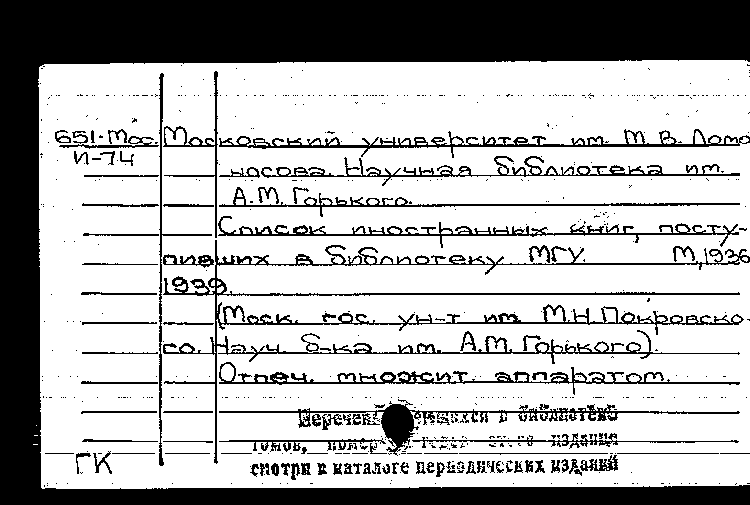 651-Мос. Московский университет им. М.В. Ломо
И-74
носова. Научная библиотека им.
А.М. Горького.
Список иностранных книг, посту-
пивших в библиотеку МГУ. М, 1936
1939.
(Моск. гос. ун-т им. М.Н. Покровско-
го. Науч. б-ка им. А.М. Горького).
Отпеч. множит. аппаратом.
Перечень в библиотеке
томов, издания
смотри в каталоге периодических изданий
ГК